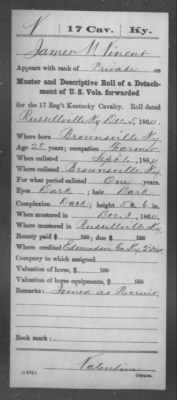 N 17 Cav. Ky.
James W Vincent
Appears with rank of Private on
Muster and Descriptive Roll of a Detach-
ment of U. S. Vols. forwarded
for the 17 Reg't Kentucky Cavalry. Roll dated
Russellville Ky Dec 5, 1864.
Where born Brownsville Ky
Age 28 years; occupation Farmer
When enlisted Sept 6, 1864
Where enlisted Brownsville Ky
For what period enlisted One years.
Eyes Dark; hair Dark
Complexion Dark; height 5 ft. 6 in.
When mustered in Dec 3, 1864
Where mustered in Russellville Ky
Bounty paid $ 100; due $ 100
Where credited Edmundson Co Ky
Company to which assigned
Valuation of horse, $ 100
Valuation of horse equipments, $ 100
Remarks: Joined as Recruit
Book mark:
Valentine
Copyist.